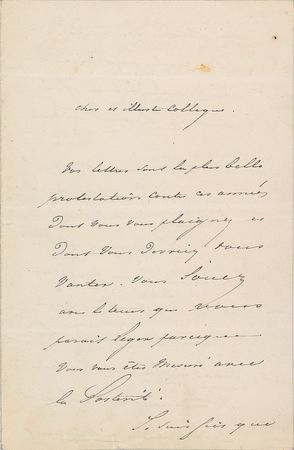 cher et illustre Collegue.
Vos lettres sont la plus belle
protestation contre ces années
Dont vous vous plaignez et
Dont Vous Devriez vous
Vanter. Vous
que vous
parait leger parceque
Vous vous êtes Mesuré avec
la Postérité.
Je suis fier que